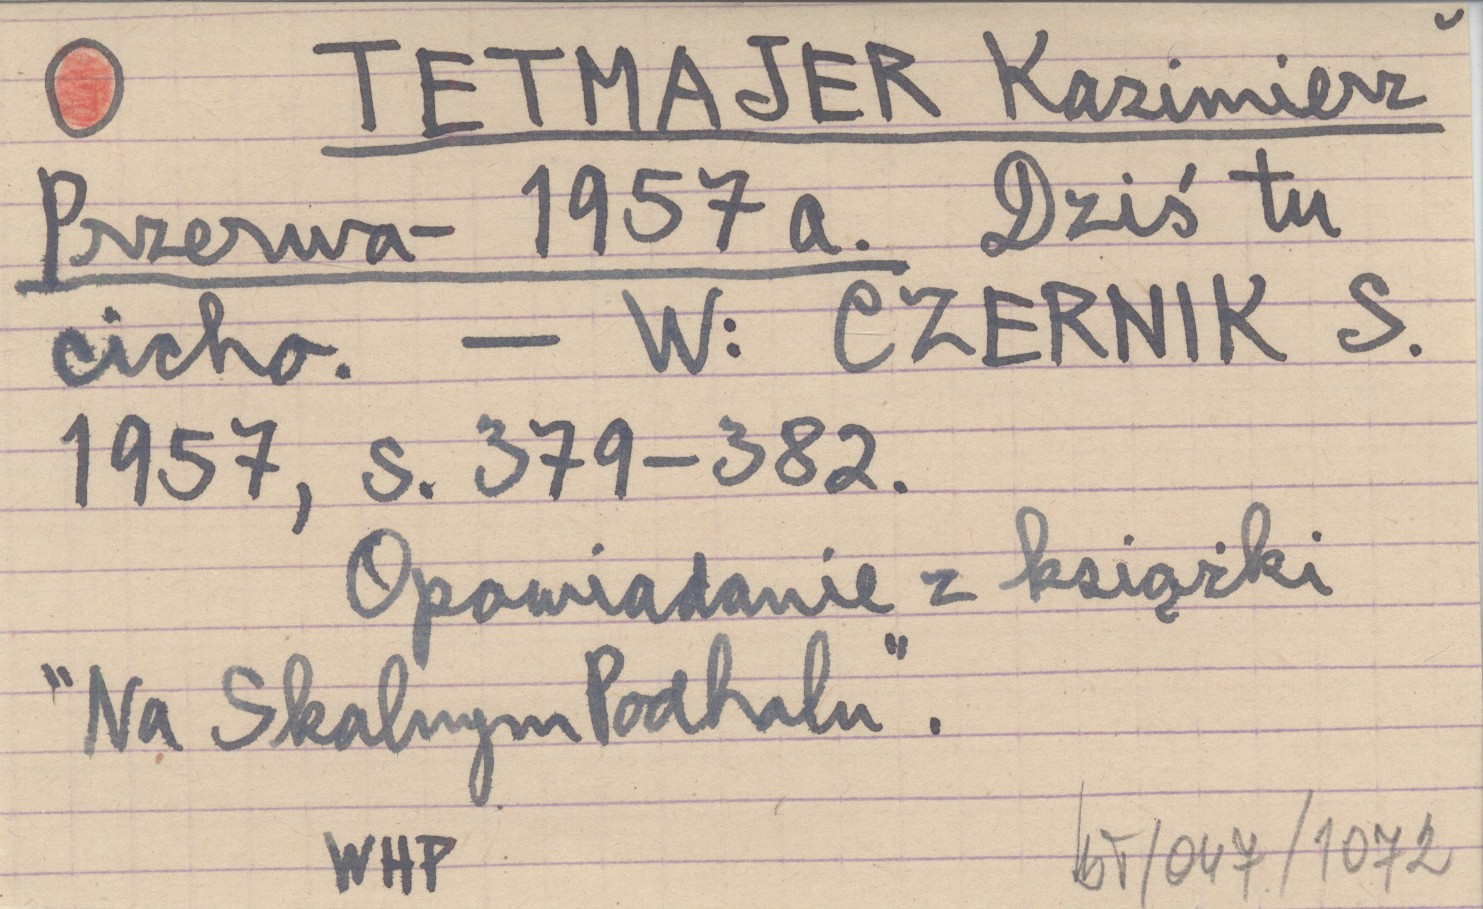 TETMAJER Kazimierz
Przerwa- 1957a. Dziś tu
cicho. — W: CZERNIK S.
1957, s. 379-382.
Opowiadanie z książki
"Na Skalnym Podhalu".
WHP
/047/1072